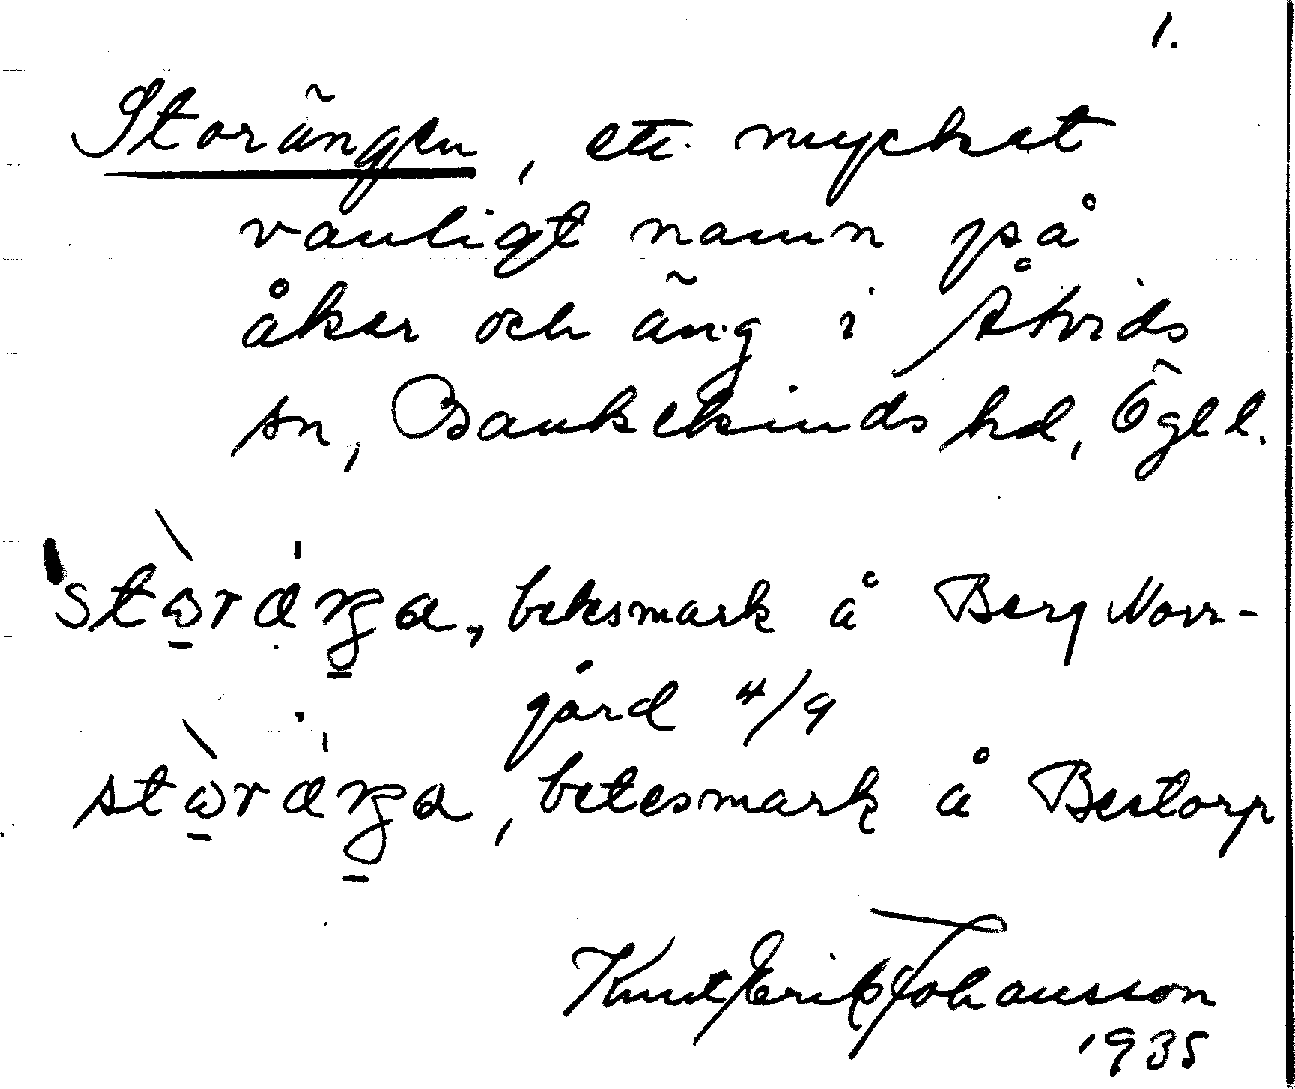 1.
Storängen, ett mycket
vanligt namn på
åker och äng i Åtvids
sn, Bankekinds hd, Ögl l.
betesmark å Berg Norr-
gård 4/9
betesmark å Bestorp
Knut Erik Johansson
1935